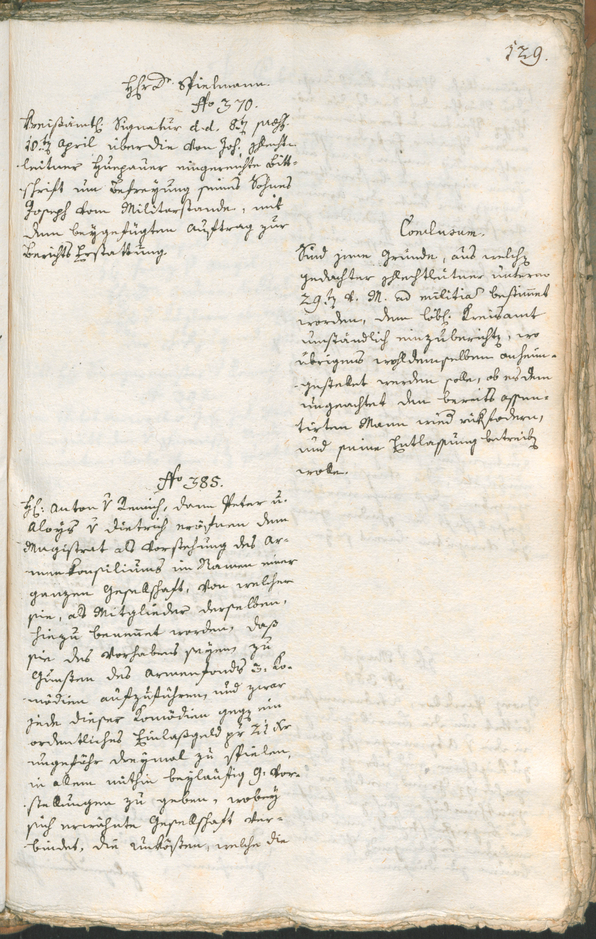 129.
Hhr. Dr. Spielmann.
No 370.
Kreisämtl. Signatur d. d. 8ten praes.
10ten April über die von Joh. Flecht-
leitner Huepauer eingereichte Bitt-
schrift um Befreyung seines Sohnes
Joseph vom Militarstande, mit
dem beygefügten Auftrag zur
Berichts Erstattung.
Conclusum.
Sind jene Gründe, aus welchen
gedachter Flechtleitner unterm
29ten v. M. ad militiam bestimmet
worden, dem löbl. Kreisamt
umständlich einzuberichten, wo
übrigens wohldemselben anheim-
gestellet werden solle, ob es dem
ungeachtet den bereits assen-
tirten Mann wied rükfodern,
und seine Entlassung betreiben
wolle.
No 385.
H: Anton v Remich, dann Peter u.
Aloys v Dietrich eröfnen dem
Magistrat als Vorstehung des Ar-
menkonsiliums im Namen einer
ganzen Gesellschaft, von welcher
sie, als Mitglieder derselben,
hiezu benennet worden, daß
sie des Vorhabens seyen, zu
Gunsten des Armenfonds 3. Ko-
mödien aufzuführen, und zwar
jede dieser Komödien gegen ein
ordentliches Einlaßgeld pr 24 kr
ungefähr dreymal zu spielen,
in allem mithin beyläufig 9. Vor-
stellungen zu geben, wobey
sich erwähnte Gesellschaft ver-
bindet, die Unkösten, welche die